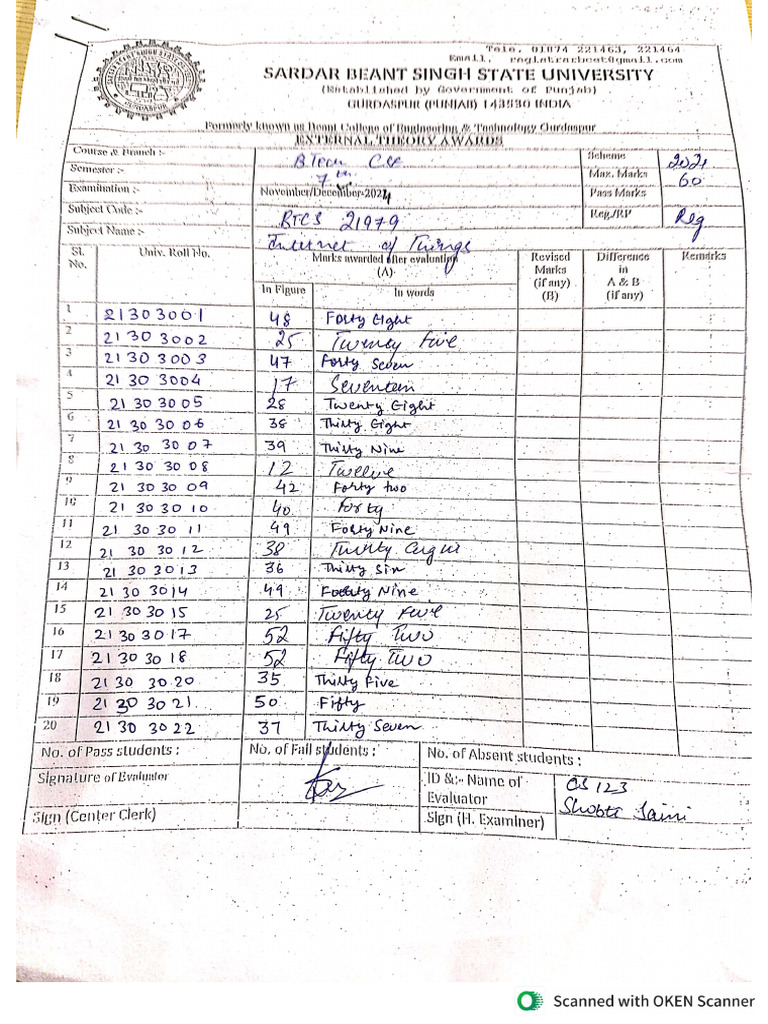 Tele. 01874 221463, 221464
Email. registrarbcet@gmail.com
SARDAR BEANT SINGH STATE UNIVERSITY
(Established by Government of Punjab)
GURDASPUR (PUNJAB) 143530 INDIA
Formerly known as Beant College of Engineering & Technology Gurdaspur
EXTERNAL THEORY AWARDS
Course & Branch :- BTech CSE Scheme 2021
Semester :- 7th Max. Marks 60
Examination :- November/December-2024 Pass Marks
Subject Code :- BTCS 21979 Reg./RP Reg
Subject Name :- Internet of Things
Sl. No. Univ. Roll No. Marks awarded after evaluation (A) Revised Marks (if any) (B) Difference in A & B (if any) Remarks
In Figure In words
1 21303001 48 Forty Eight
2 21303002 25 Twenty Five
3 21303003 47 Forty Seven
4 21303004 17 Seventeen
5 21303005 28 Twenty Eight
6 21303006 38 Thirty Eight
7 21303007 39 Thirty Nine
8 21303008 12 Twelve
9 21303009 42 Forty two
10 21303010 40 Forty
11 21303011 49 Forty Nine
12 21303012 38 Thirty
13 21303013 36 Thirty Six
14 21303014 49 Forty Nine
15 21303015 25 Twenty Five
16 21303017 52 Fifty Two
17 21303018 52 Fifty Two
18 21303020 35 Thirty Five
19 21303021 50 Fifty
20 21303022 37 Thirty Seven
No. of Pass students : No. of Fail students : No. of Absent students :
Signature of Evaluator ID &:- Name of Evaluator CS 123
Saini
Sign (Center Clerk) Sign (H. Examiner)
Scanned with OKEN Scanner